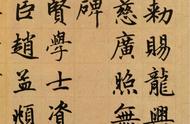 勑賜龍興
慈廣照無
碑
賢學士資
臣趙孟頫